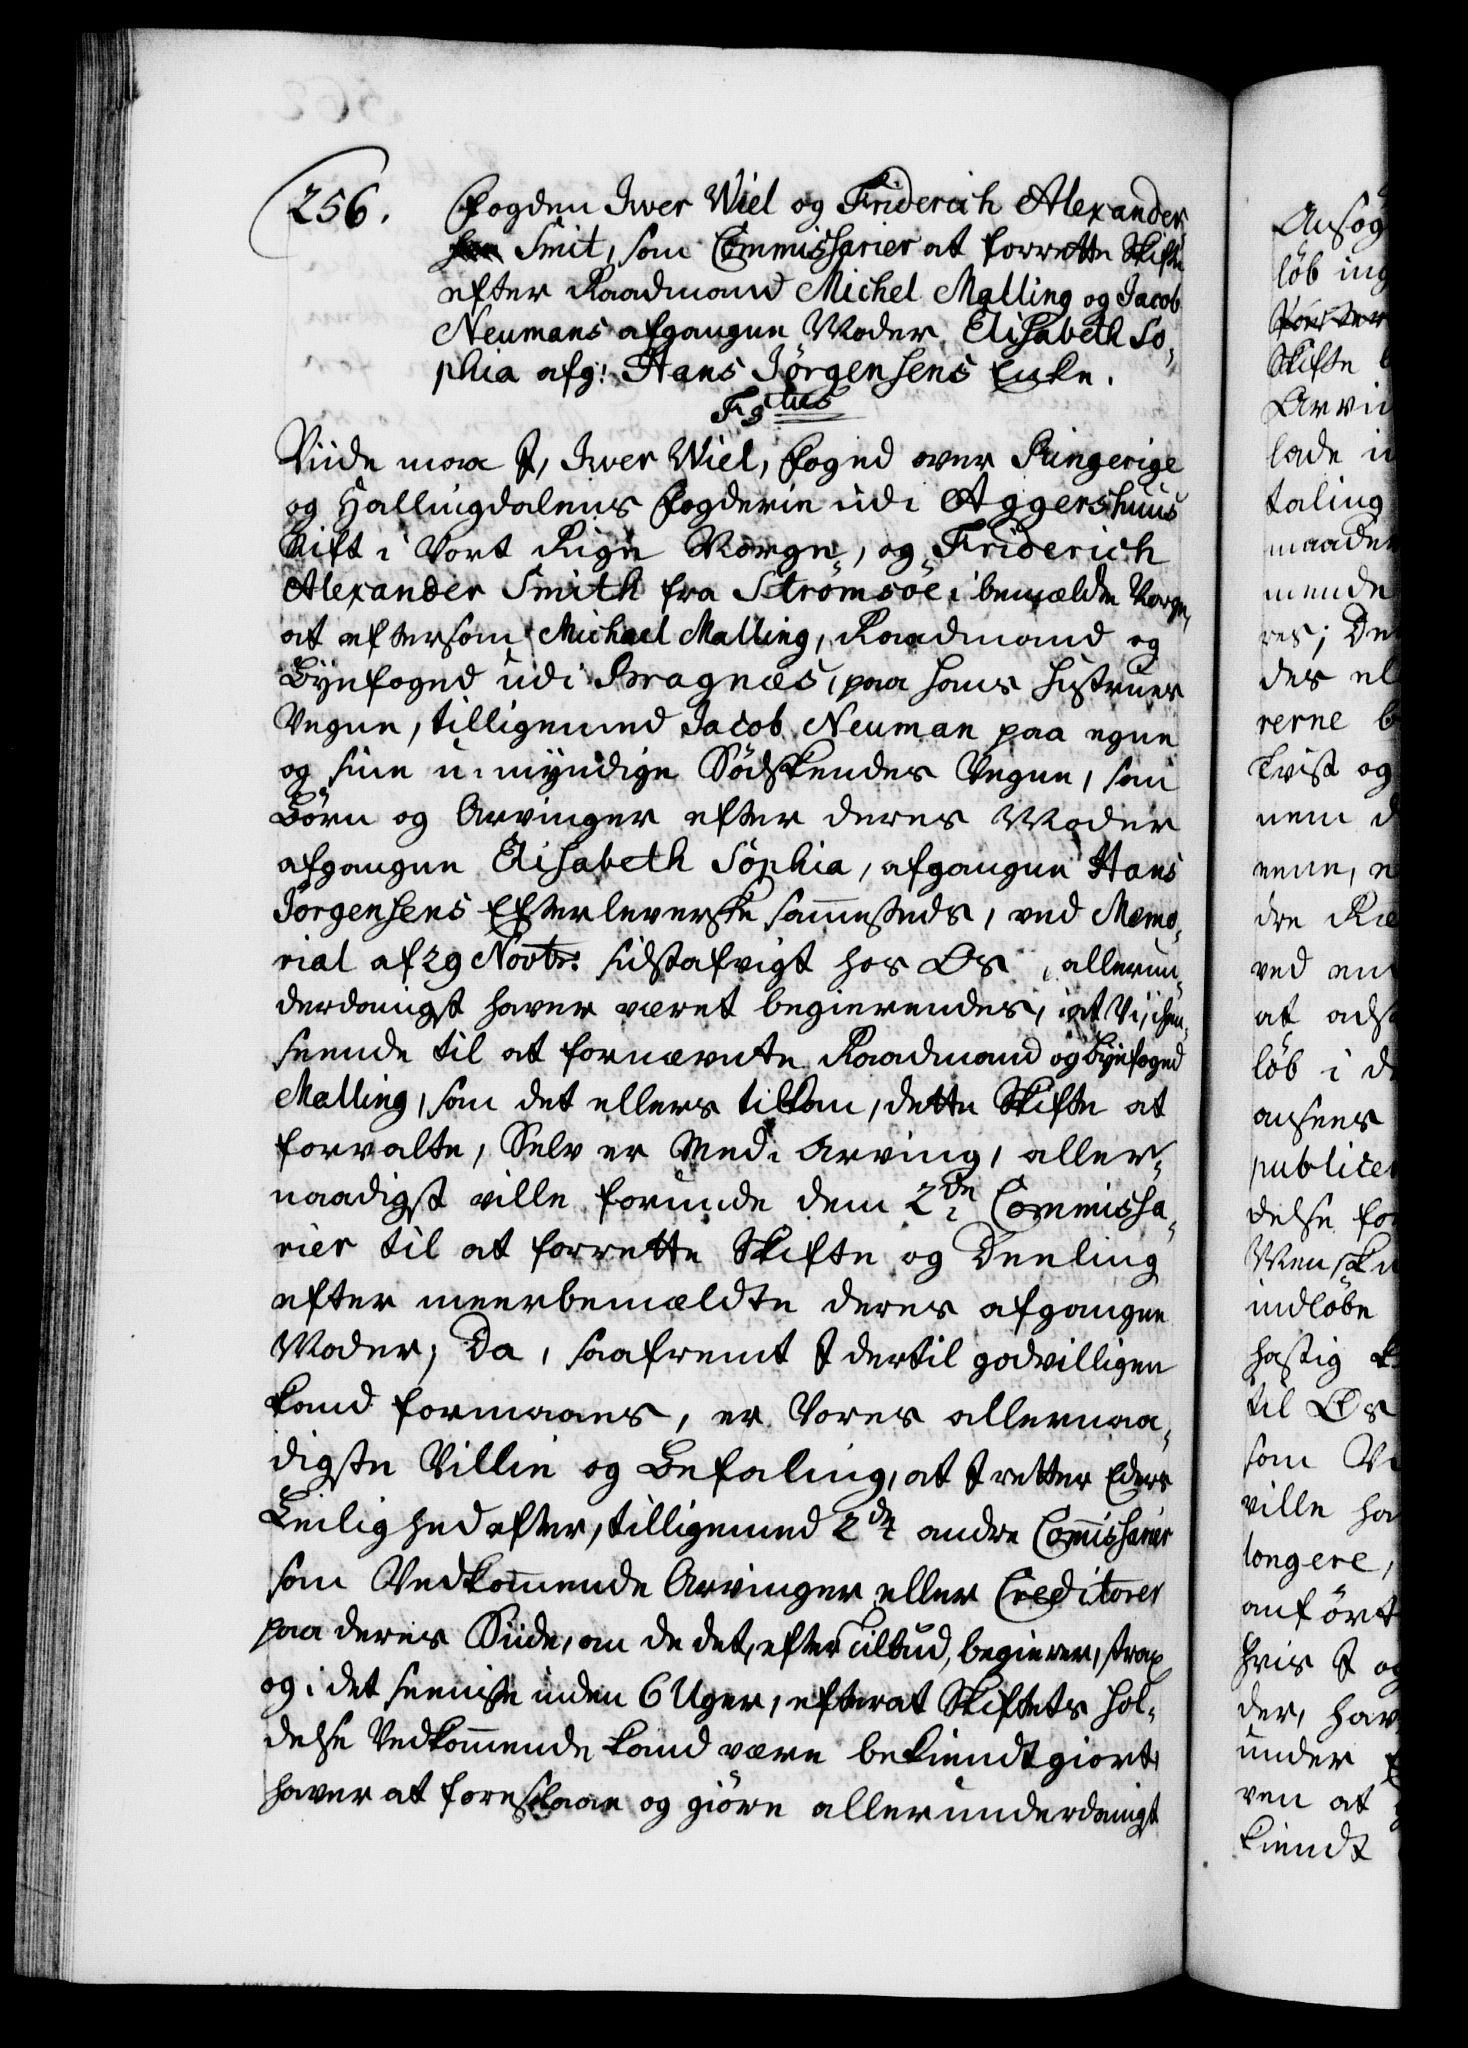 256.
Fogden Iver Wiel og Friderich Alexander
Smit, som Commissarier at forrette Skifte
efter Raadmand Michel Malling og Jacob
Neumans afgangne Moder Elisabeth So-
phia afg: Hans Jörgensens Enke.
F 5tus
Viide maa I, Iver Wiel, Foged over Ringerige
og Hallingdalens Fogderie udi Aggershuus
Stift i Vort Rige Norge, og Friderich
Alexander Smith fra Strømsöe i bemældte Norge,
at eftersom Michael Malling, Raadmand og
Byefoged udi Bragnæs, paa hans Hustrues
Vegne, tilligemed Jacob Neuman paa egne
og sine u-myndige Södskendes Vegne, som
Börn og Arvinger efter deres Moder
afgangne Elisabeth Sophia, afgangne Hans
Jorgensens Efterleverske sammesteds, ved Memo-
rial af 29 Novbr: sidstafvigt hos Os, allerun-
derdanigst haver været begierendes, at Vi, i hen-
seende til at fornævnte Raadmand og Byefoged
Malling, som det ellers tilkom, dette Skifte at
forvalte, Selv er Med-Arving, aller-
naadigst ville forunde dem 2de Commissa-
rier til at forrette Skifte og Deeling
efter meerbemældte deres afgangne
Moder; Da, saafremt I dertil godvilligen
kand formaaes, er Vores allernaa-
digste Villie og Befaling, at I retter Eders
Leilighed efter, tilligemed 2de andre Comissarier
som Vedkommende Arvinger eller Creditorer
paa deres Siide, om de det, efter Tilbud, begierer, strax
og i det seeniste inden 6 Uger, efterat Skiftets Hol-
delse Vedkommende kand være bekiendtgiort
haver at foreslaae og giöre allerunderdanigst
Ansög
löb ing
Skifte
Arvin
lade i
taling
maader
mende
res; De
des el
rerne b
Tvist og
nem d
eene, e
dre Re
ved en
at ads
löb i d
ansees
publicer
delse for
Mensku
indlöbe
hastig
til Os
som Vi
ville ha
længere,
anfört
hvis I og
der, hav
under
ven at
kiendt